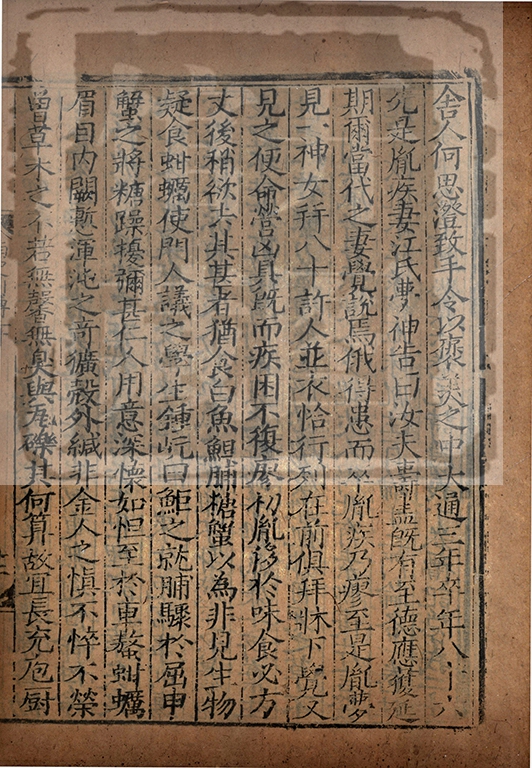 舍人何思澄致手令以襃美之中大通三年卒年八十六
先是胤疾妻江氏夢神告曰汝夫壽盡既有至德應獲延
期爾當代之妻覺說焉俄得患而卒胤疾乃瘳至是胤夢
見一神女并八十許人並衣帢行列在前俱拜牀下覺又
見之便命營凶具既而疾困不復瘳初胤侈於味食必方
丈後稍欲去其甚者猶食白魚䱇脯糖蟹以為非見生物
疑食蚶蠣使門人議之學生鍾岏曰䱇之就脯驟於屈申
蟹之將糖躁擾彌甚仁人用意深懷如怛至於車螯蚶蠣
眉目內闕慙渾沌之奇獷殼外緘非金人之慎不悴不榮
曾草木之不若無馨無臭與瓦礫其何算故宜長充庖厨